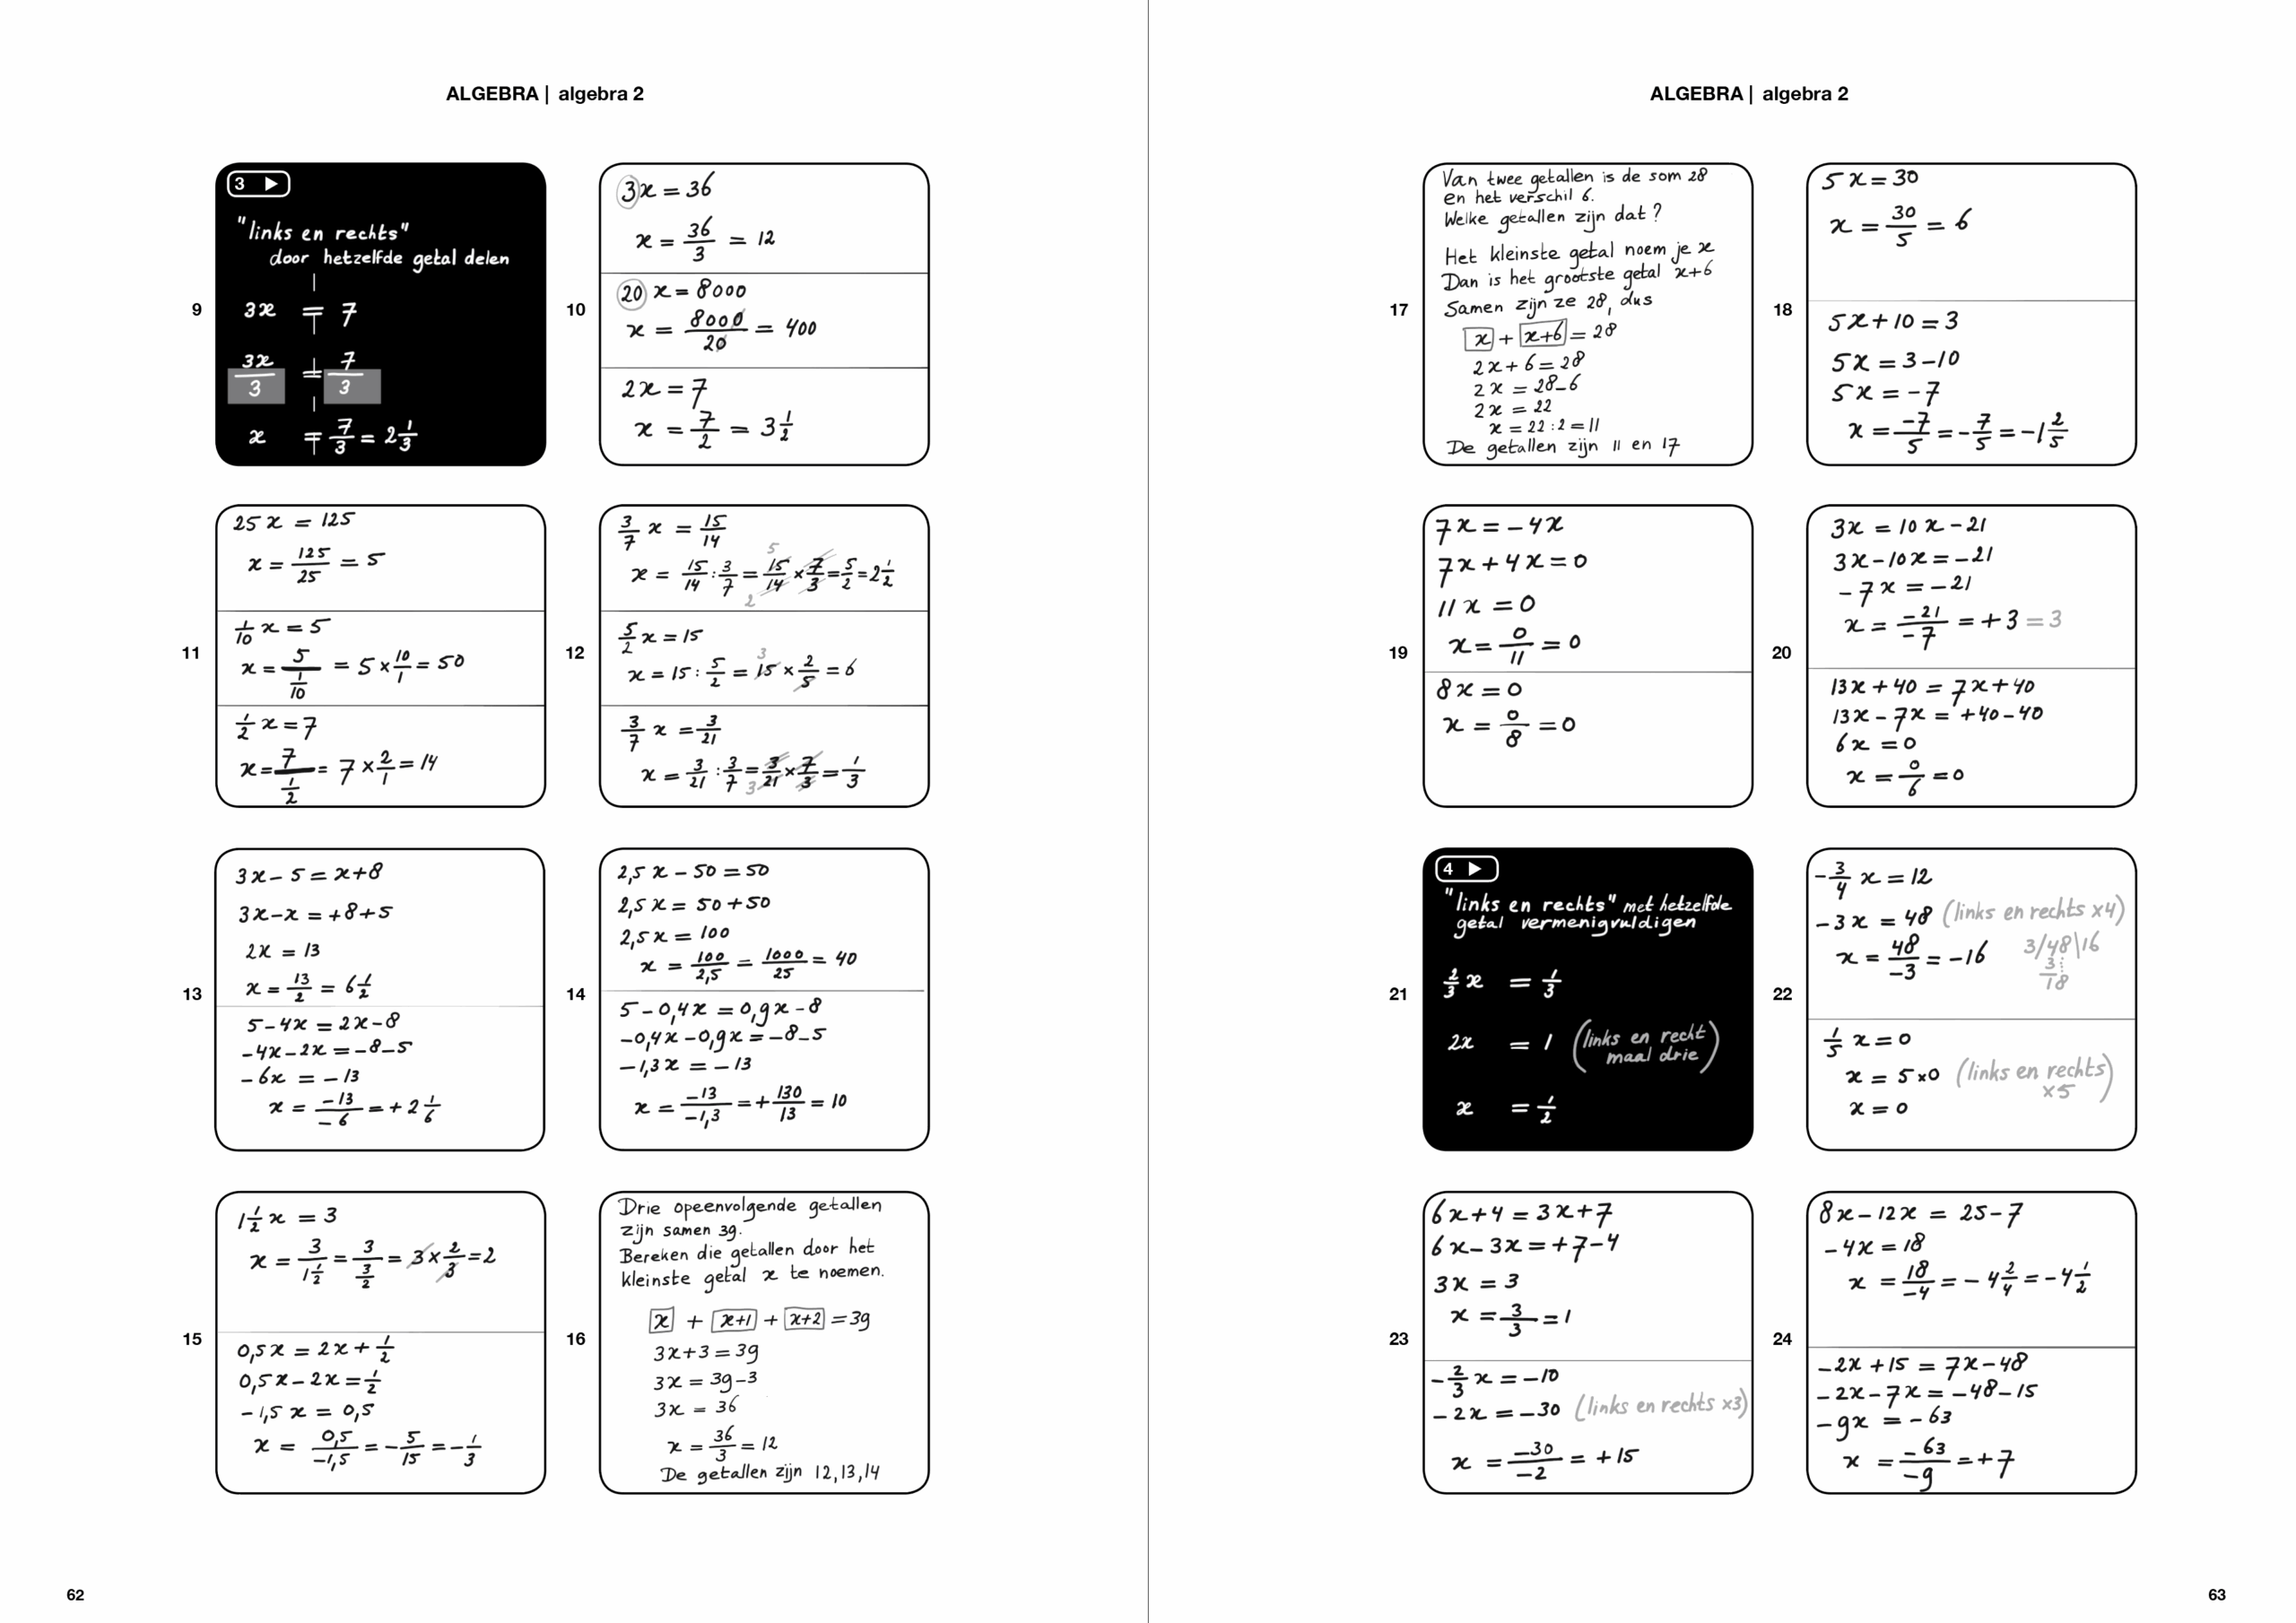 ALGEBRA | algebra 2
9
3 ▶
"links en rechts"
door hetzelfde getal delen
3x = 7
3x/3 = 7/3
x = 7/3 = 2 1/3
10
3x = 36
x = 36/3 = 12
20 x = 8000
x = 8000/20 = 400
2x = 7
x = 7/2 = 3 1/2
11
25x = 125
x = 125/25 = 5
1/10 x = 5
x = 5/(1/10) = 5 × 10/1 = 50
1/2 x = 7
x = 7/(1/2) = 7 × 2/1 = 14
12
3/7 x = 15/14
5
x = 15/14 : 3/7 = 15/14 × 7/3 = 5/2 = 2 1/2
2
5/2 x = 15
3
x = 15 : 5/2 = 15 × 2/5 = 6
3/7 x = 3/21
x = 3/21 : 3/7 = 3/21 × 7/3 = 1/3
3
13
3x - 5 = x + 8
3x - x = +8 + 5
2x = 13
x = 13/2 = 6 1/2
5 - 4x = 2x - 8
-4x - 2x = -8 - 5
-6x = -13
x = -13/-6 = +2 1/6
14
2,5x - 50 = 50
2,5x = 50 + 50
2,5x = 100
x = 100/2,5 = 1000/25 = 40
5 - 0,4x = 0,9x - 8
-0,4x - 0,9x = -8 - 5
-1,3x = -13
x = -13/-1,3 = +130/13 = 10
15
1 1/2 x = 3
x = 3/(1 1/2) = 3/(3/2) = 3 × 2/3 = 2
0,5x = 2x + 1/2
0,5x - 2x = 1/2
-1,5x = 0,5
x = 0,5/-1,5 = -5/15 = -1/3
16
Drie opeenvolgende getallen
zijn samen 39.
Bereken die getallen door het
kleinste getal x te noemen.
x + x+1 + x+2 = 39
3x + 3 = 39
3x = 39 - 3
3x = 36
x = 36/3 = 12
De getallen zijn 12, 13, 14
62
ALGEBRA | algebra 2
17
Van twee getallen is de som 28
en het verschil 6.
Welke getallen zijn dat?
Het kleinste getal noem je x
Dan is het grootste getal x+6
Samen zijn ze 28, dus
x + x+6 = 28
2x + 6 = 28
2x = 28 - 6
2x = 22
x = 22 : 2 = 11
De getallen zijn 11 en 17
18
5x = 30
x = 30/5 = 6
5x + 10 = 3
5x = 3 - 10
5x = -7
x = -7/5 = -7/5 = -1 2/5
19
7x = -4x
7x + 4x = 0
11x = 0
x = 0/11 = 0
8x = 0
x = 0/8 = 0
20
3x = 10x - 21
3x - 10x = -21
-7x = -21
x = -21/-7 = +3 = 3
13x + 40 = 7x + 40
13x - 7x = +40 - 40
6x = 0
x = 0/6 = 0
21
4 ▶
"links en rechts" met hetzelfde
getal vermenigvuldigen
2/3 x = 1/3
2x = 1 (links en recht
maal drie)
x = 1/2
22
-3/4 x = 12
-3x = 48 (links en rechts x4)
x = 48/-3 = -16 3/48\16
3
18
1/5 x = 0
x = 5 × 0 (links en rechts
x5)
x = 0
23
6x + 4 = 3x + 7
6x - 3x = +7 - 4
3x = 3
x = 3/3 = 1
-2/3 x = -10
-2x = -30 (links en rechts x3)
x = -30/-2 = +15
24
8x - 12x = 25 - 7
-4x = 18
x = 18/-4 = -4 2/4 = -4 1/2
-2x + 15 = 7x - 48
-2x - 7x = -48 - 15
-9x = -63
x = -63/-9 = +7
63